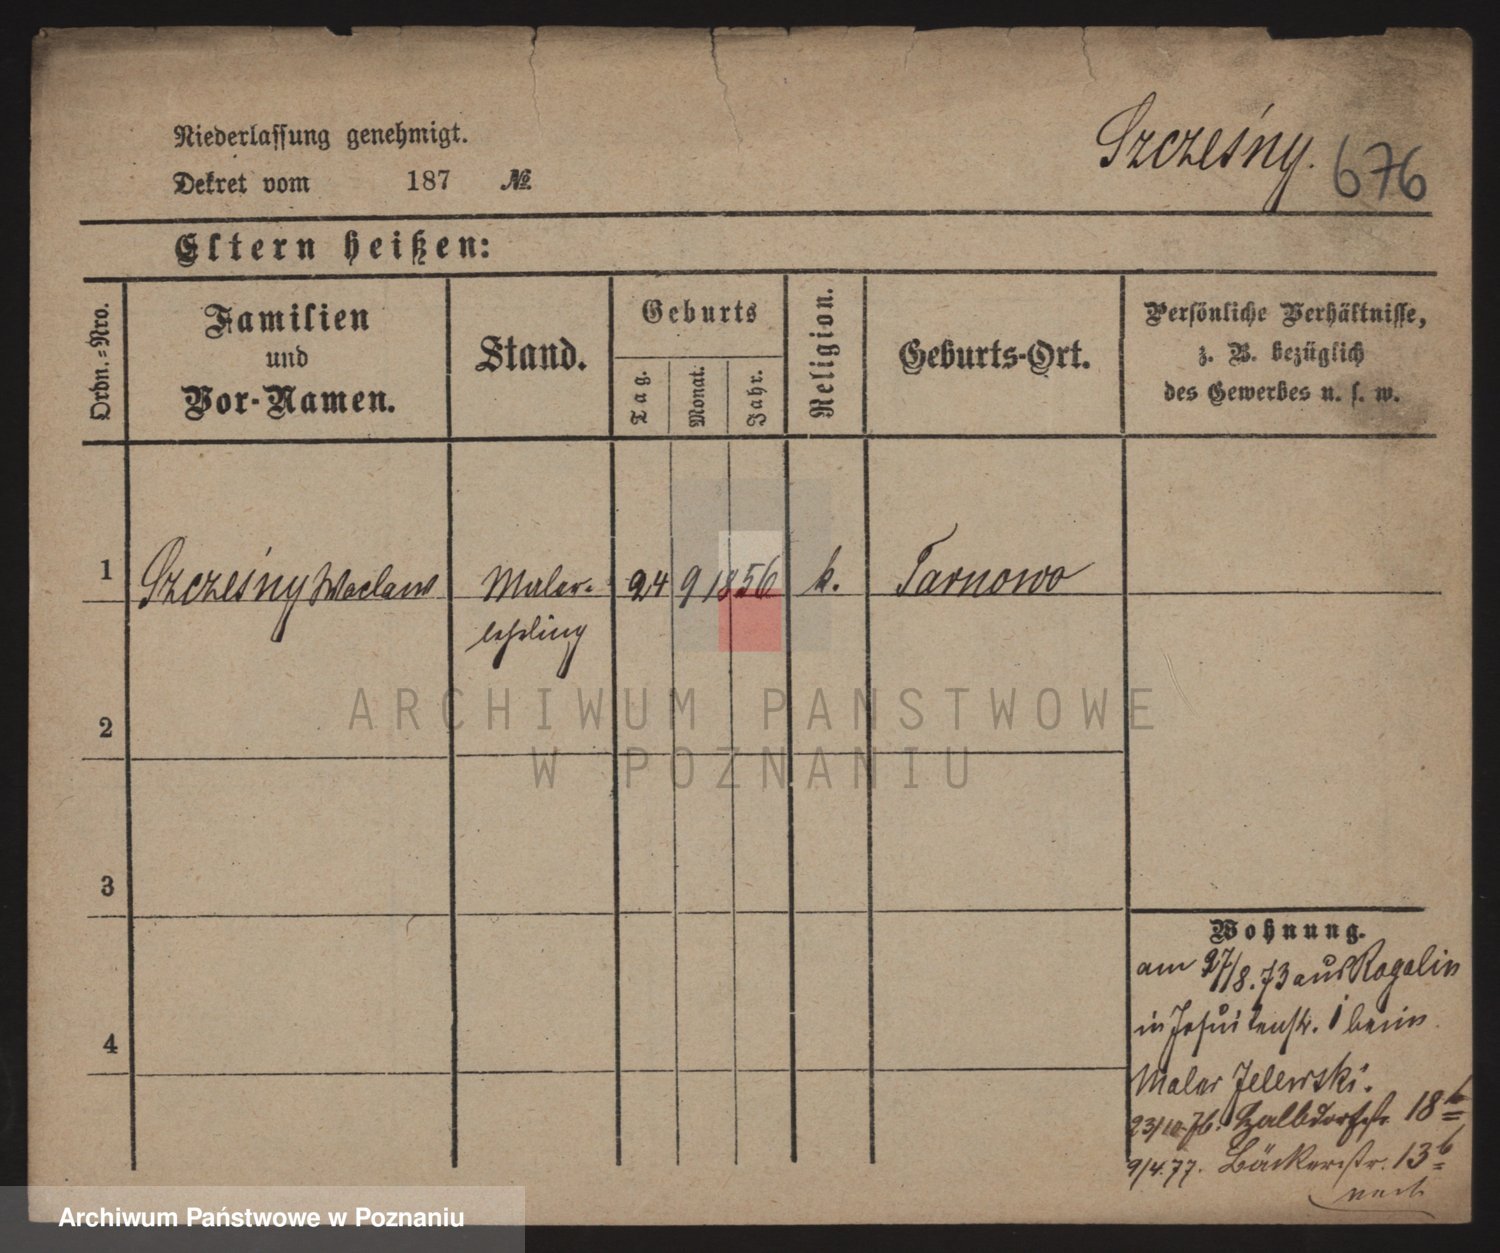 Niederlassung genehmigt.
Dekret vom 187 №
Szcześny. 676
Eltern heißen:
Ordn.-Nro.
Familien
und
Vor-Namen.
Stand.
Geburts
Tag.
Monat.
Jahr.
Religion.
Geburts-Ort.
Persönliche Verhältnisse,
z. B. bezüglich
des Gewerbes u. s. w.
1 Szcześny Waclaw Maler- 24 9 1856 k. Tarnowo
lehrling
2
3
4
Wohnung.
am 27/8.73 aus Rogalin
in Jesuitenstr. 1 beim
Maler Jelewski.
23/10.76. Halbdorfstr. 18b
9/4.77. Bäckerstr. 13b
ARCHIWUM PANSTWOWE
W POZNANIU
Archiwum Państwowe w Poznaniu